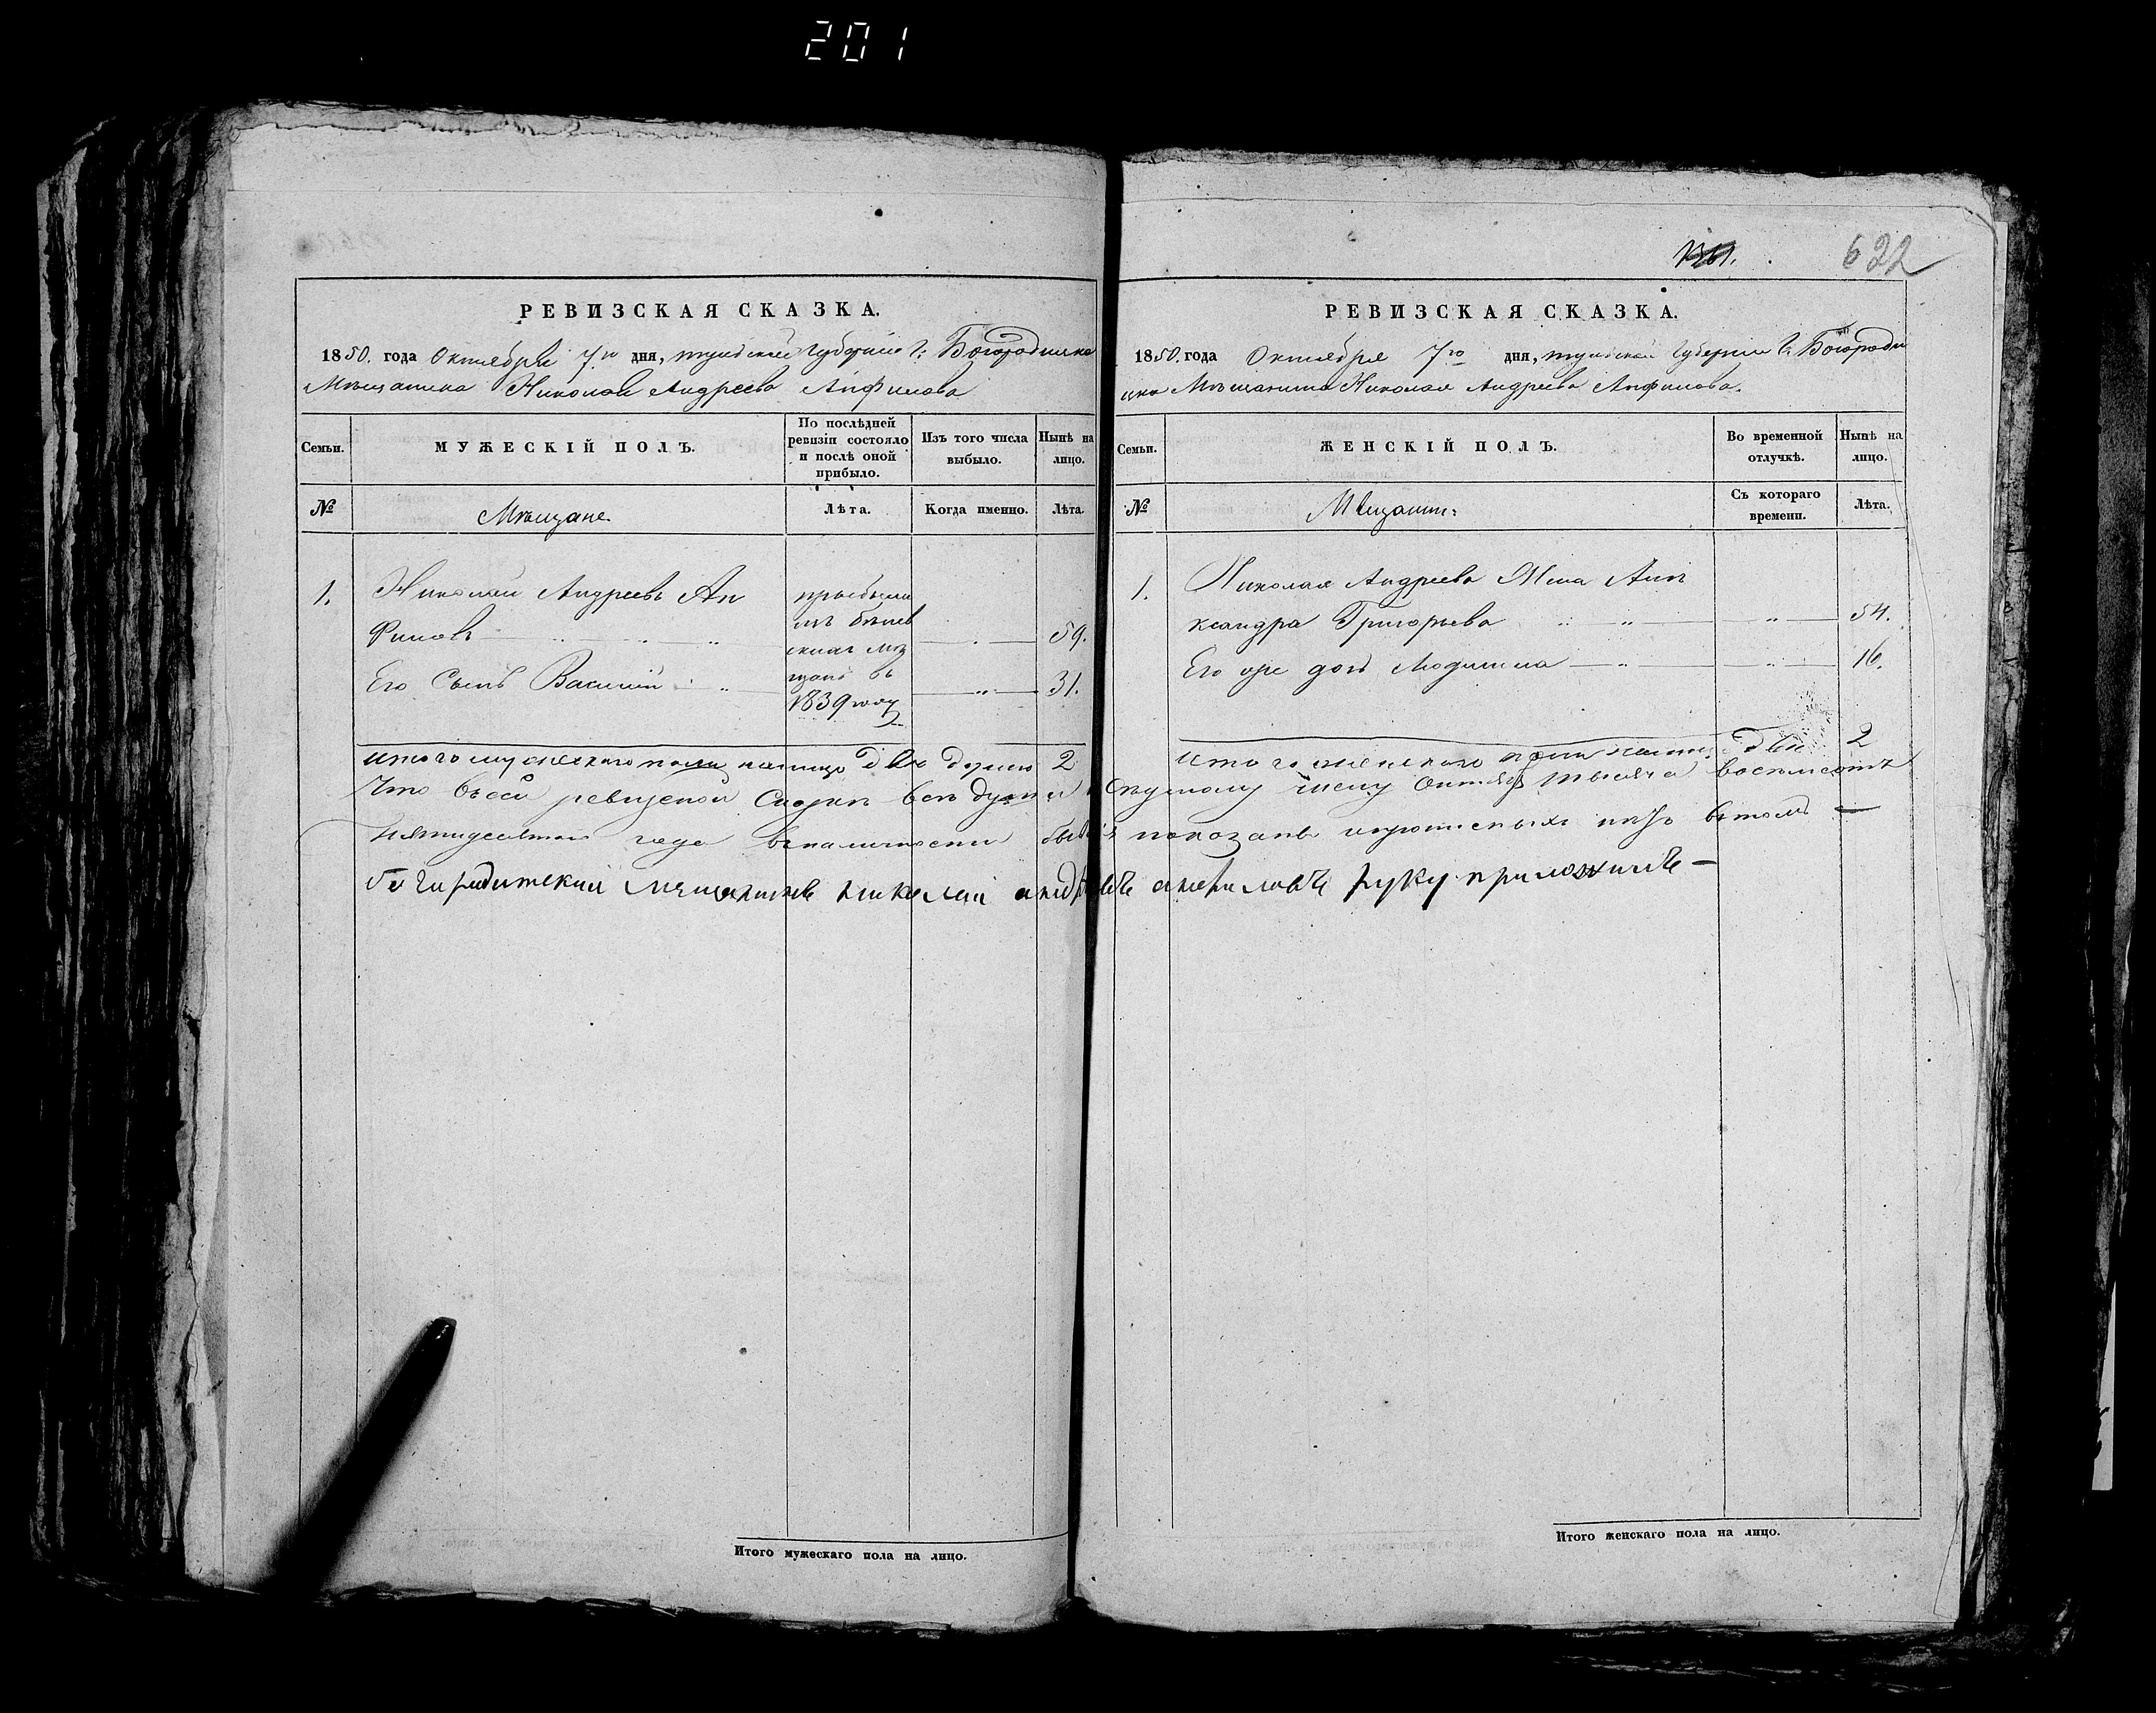 201
622
РЕВИЗСКАЯ СКАЗКА.
1850. года Октября 7го дня, тульской Губернии г: Богородицка
Мѣщанина Николая Андреева Анфилова
Семьи.
МУЖЕСКІЙ ПОЛЪ.
По послѣдней
ревизіи состояло
и послѣ оной
прибыло.
Изъ того числа
выбыло.
Нынѣ на
лицо.
№
Мѣщане
Лѣта.
Когда именно.
Лѣта.
1.
Николай Андреевъ Ан
филовъ
59.
Его Сынъ Василий
31.
прибыли
изъ
мѣ
щанъ въ
1839 году
итого мужескаго пола налицо две души 2
РЕВИЗСКАЯ СКАЗКА.
1850. года Октября 7го дня, тульской Губернии г. Богороди
цка Мѣщанина Николая Андреева Анфилова.
Семьи.
ЖЕНСКІЙ ПОЛЪ.
Во временной
отлучкѣ.
Нынѣ на
лицо.
№
Съ котораго
времени.
Лѣта.
1.
Николая Андреева Жена Але
ксандра Григорьева
54.
Его же дочь Людмила
16.
итого женскаго пола налицо две 2
Что въ сей ревизской Сказке все души к Седьмому числу Октября тысяча восемьсотъ
пятидесятаго года въ наличности показаны и въ томъ
богородитский мещанинъ николай андревъ анфиловъ руку приложилъ
Итого мужескаго пола на лицо.
Итого женскаго пола на лицо.